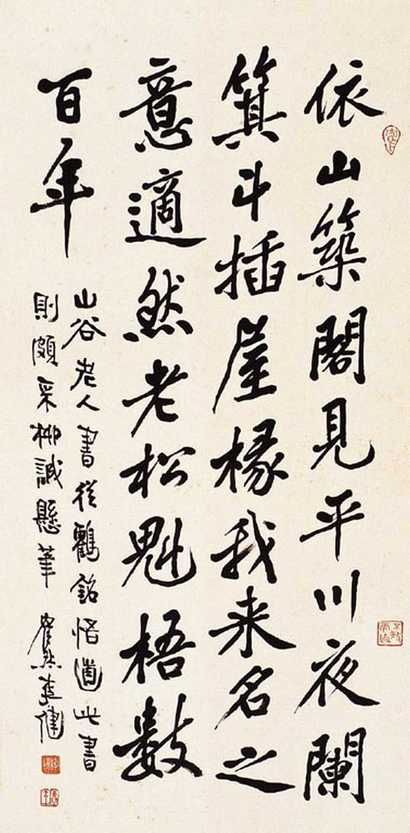 依山築閣見平川夜闌
箕斗插屋椽我来名之
意適然老松魁梧數
百年
山谷老人書從鶴銘悟適此書
則頗采柳誠懸筆